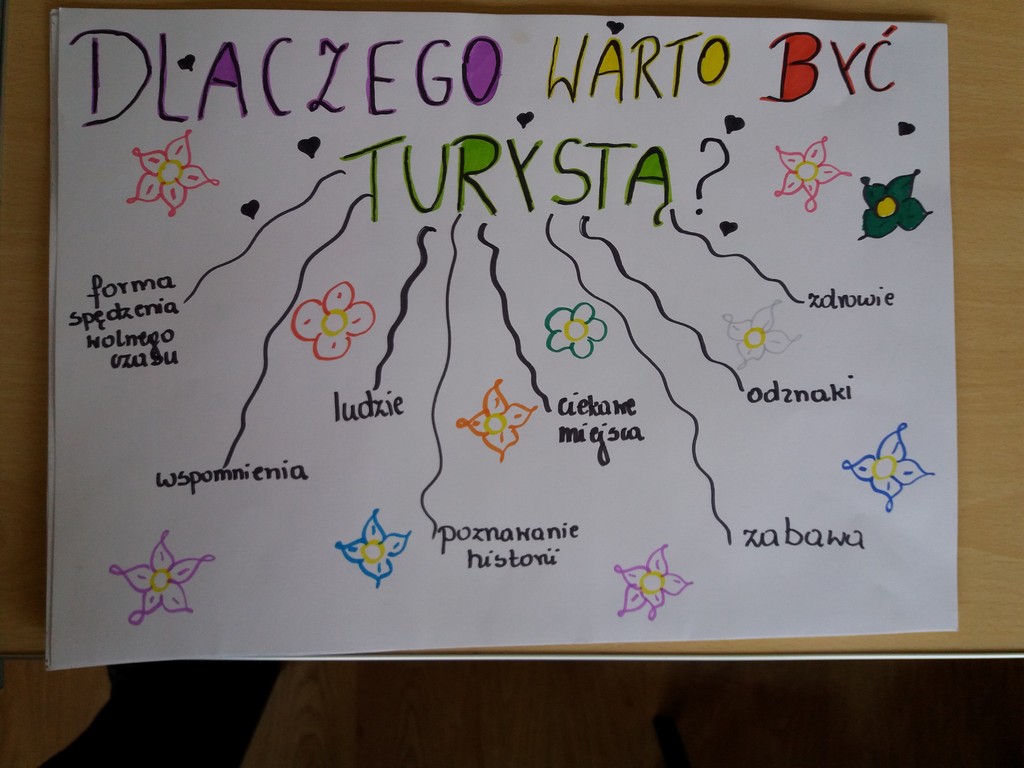 DLACZEGO WARTO BYĆ
TURYSTĄ?
forma
spędzenia
wolnego
czasu
wspomnienia
ludzie
poznawanie
historii
ciekawe
miejsca
zabawa
odznaki
zdrowie